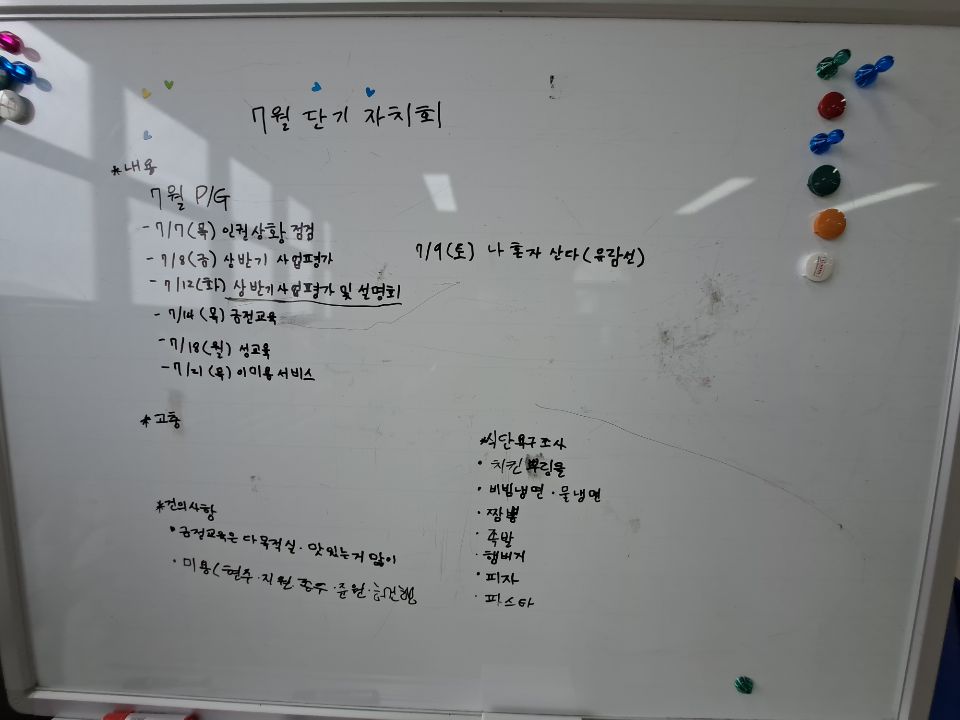 7월 단기 자치회
*내용
7월 P/G
- 7/7(목) 인권상황 점검
- 7/8(금) 상반기 사업평가
- 7/12(화) 상반기사업평가 및 설명회
- 7/14(목) 긍전교육
- 7/18(월) 성교육
- 7/21(목) 이미용 서비스
7/9(토) 나 혼자 산다(유람선)
*고충
*건의사항
• 긍정교육은 다목적실. 맛있는거 많이
• 미용(현주·직원
*식단욕구조사
• 치킨
• 비빔냉면 · 물냉면
• 짬뽕
• 족발
• 햄버거
• 피자
• 파스타